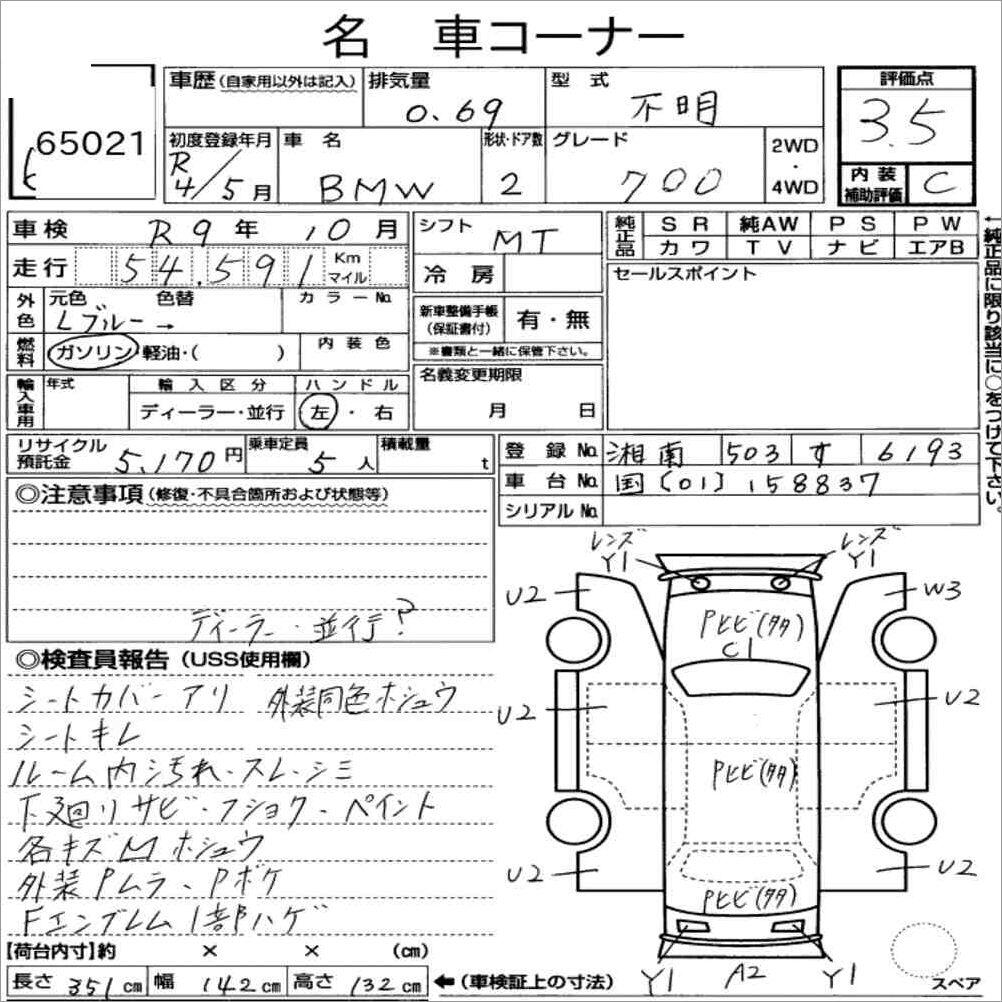 名 車コーナー
65021
車歴(自家用以外は記入) 排気量 0.69 型式 不明 評価点 3.5
初度登録年月 R4/5月 車名 BMW 形状・ドア数 2 グレード 700 2WD・4WD 内装補助評価 C
車検 R9年10月 シフト MT 純正品 SR 純AW PS PW
カワ TV ナビ エアB
走行 54,591 Km マイル 冷房 セールスポイント
外色 元色 Lブルー→ 色替 カラーNo. 新車整備手帳(保証書付) 有・無
※書類と一緒に保管下さい。
燃料 ガソリン・軽油・( ) 内装色
輸入車用 年式 輸入区分 ディーラー・並行 ハンドル 左・右 名義変更期限 月 日
←純正品に限り該当に○をつけて下さい。
リサイクル預託金 5,170円 乗車定員 5人 積載量 t 登録No. 湘南 503 す 6193
車台No. 国[01]158837
シリアルNo.
◎注意事項(修復・不具合箇所および状態等)
ディーラー・並行?
◎検査員報告(USS使用欄)
シートカバーアリ 外装同色ホシュウ
シートキレ
ルーム内汚れ・スレ・シミ
下廻りサビ・フショク・ペイント
各キズ M ホシュウ
外装Pムラ・Pボケ
Fエンブレム1部ハゲ
【荷台内寸】約 × × (cm)
長さ 351cm 幅 142cm 高さ 132cm ←(車検証上の寸法)
レンズ Y1 レンズ Y1
U2 W3
Pヒビ(タタ)
C1
U2 U2
Pヒビ(タタ)
U2 U2
Pヒビ(タタ)
Y1 A2 Y1
スペア